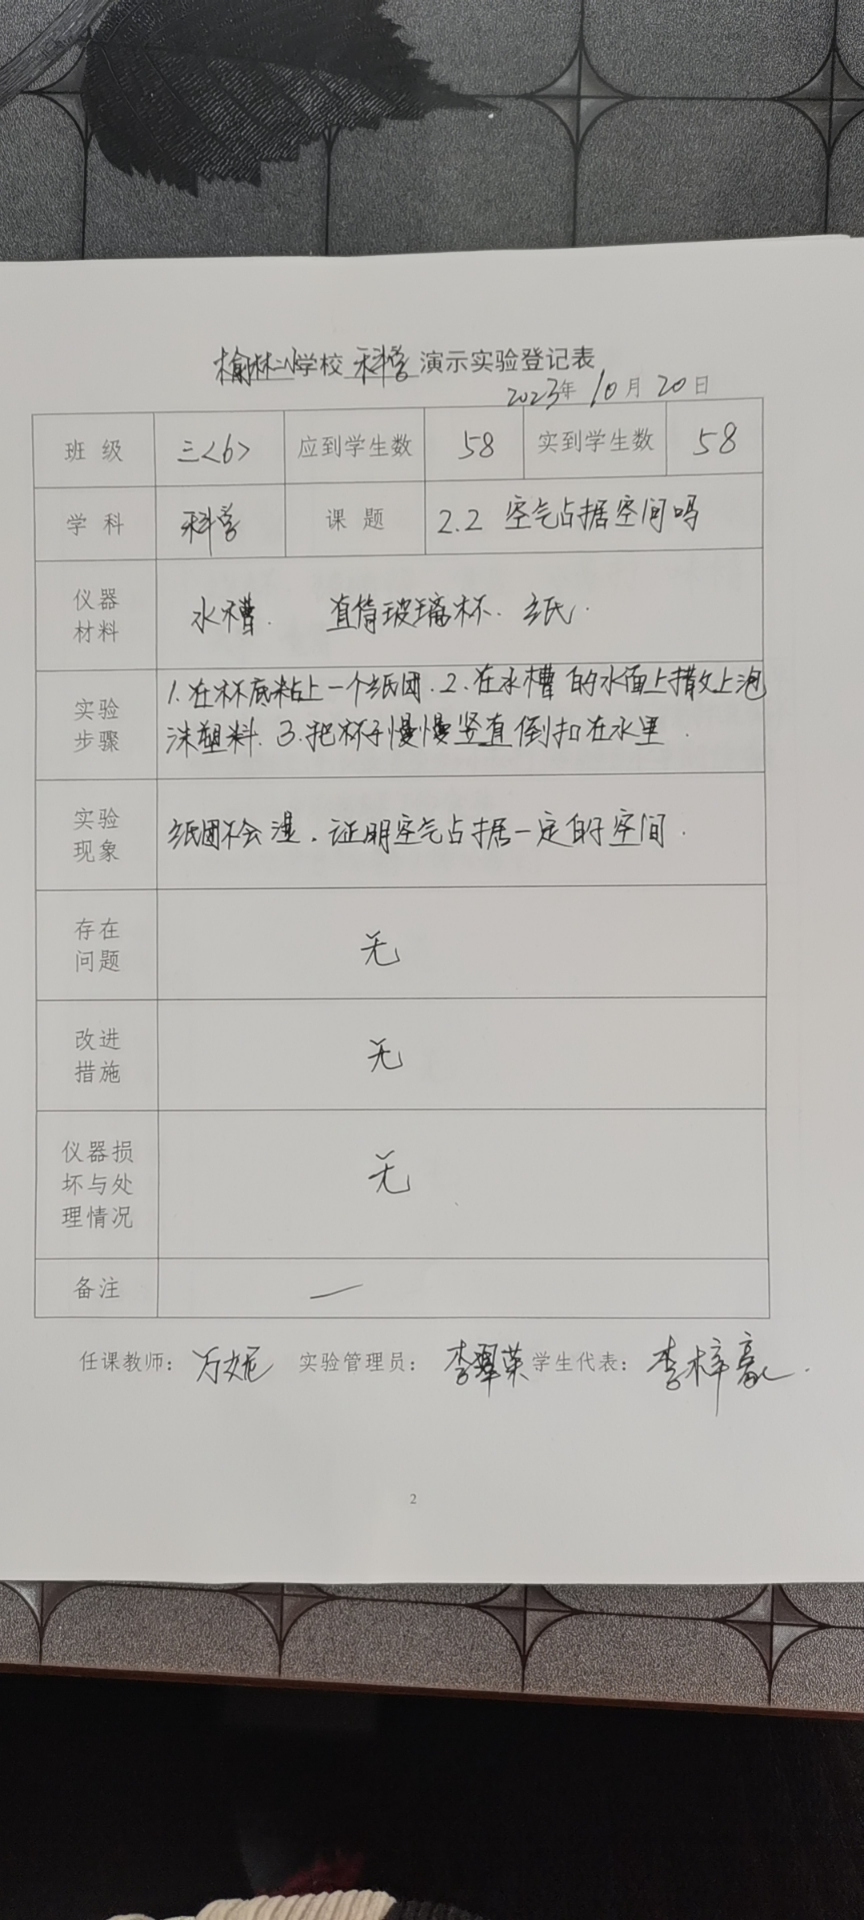 榆林二小学校 科学 演示实验登记表
2023年 10月 20日
班 级 三<6> 应到学生数 58 实到学生数 58
学 科 科学 课 题 2.2 空气占据空间吗
仪器
材料
水槽. 直筒玻璃杯. 纸.
实验
步骤
1.在杯底粘上一个纸团.2.在水槽的水面上撒上泡
沫塑料.3.把杯子慢慢竖直倒扣在水里.
实验
现象
纸团不会湿.证明空气占据一定的空间.
存在
问题
无
改进
措施
无
仪器损
坏与处
理情况
无
备注 一
任课教师：万妮 实验管理员：李翠英 学生代表：李梓豪.
2